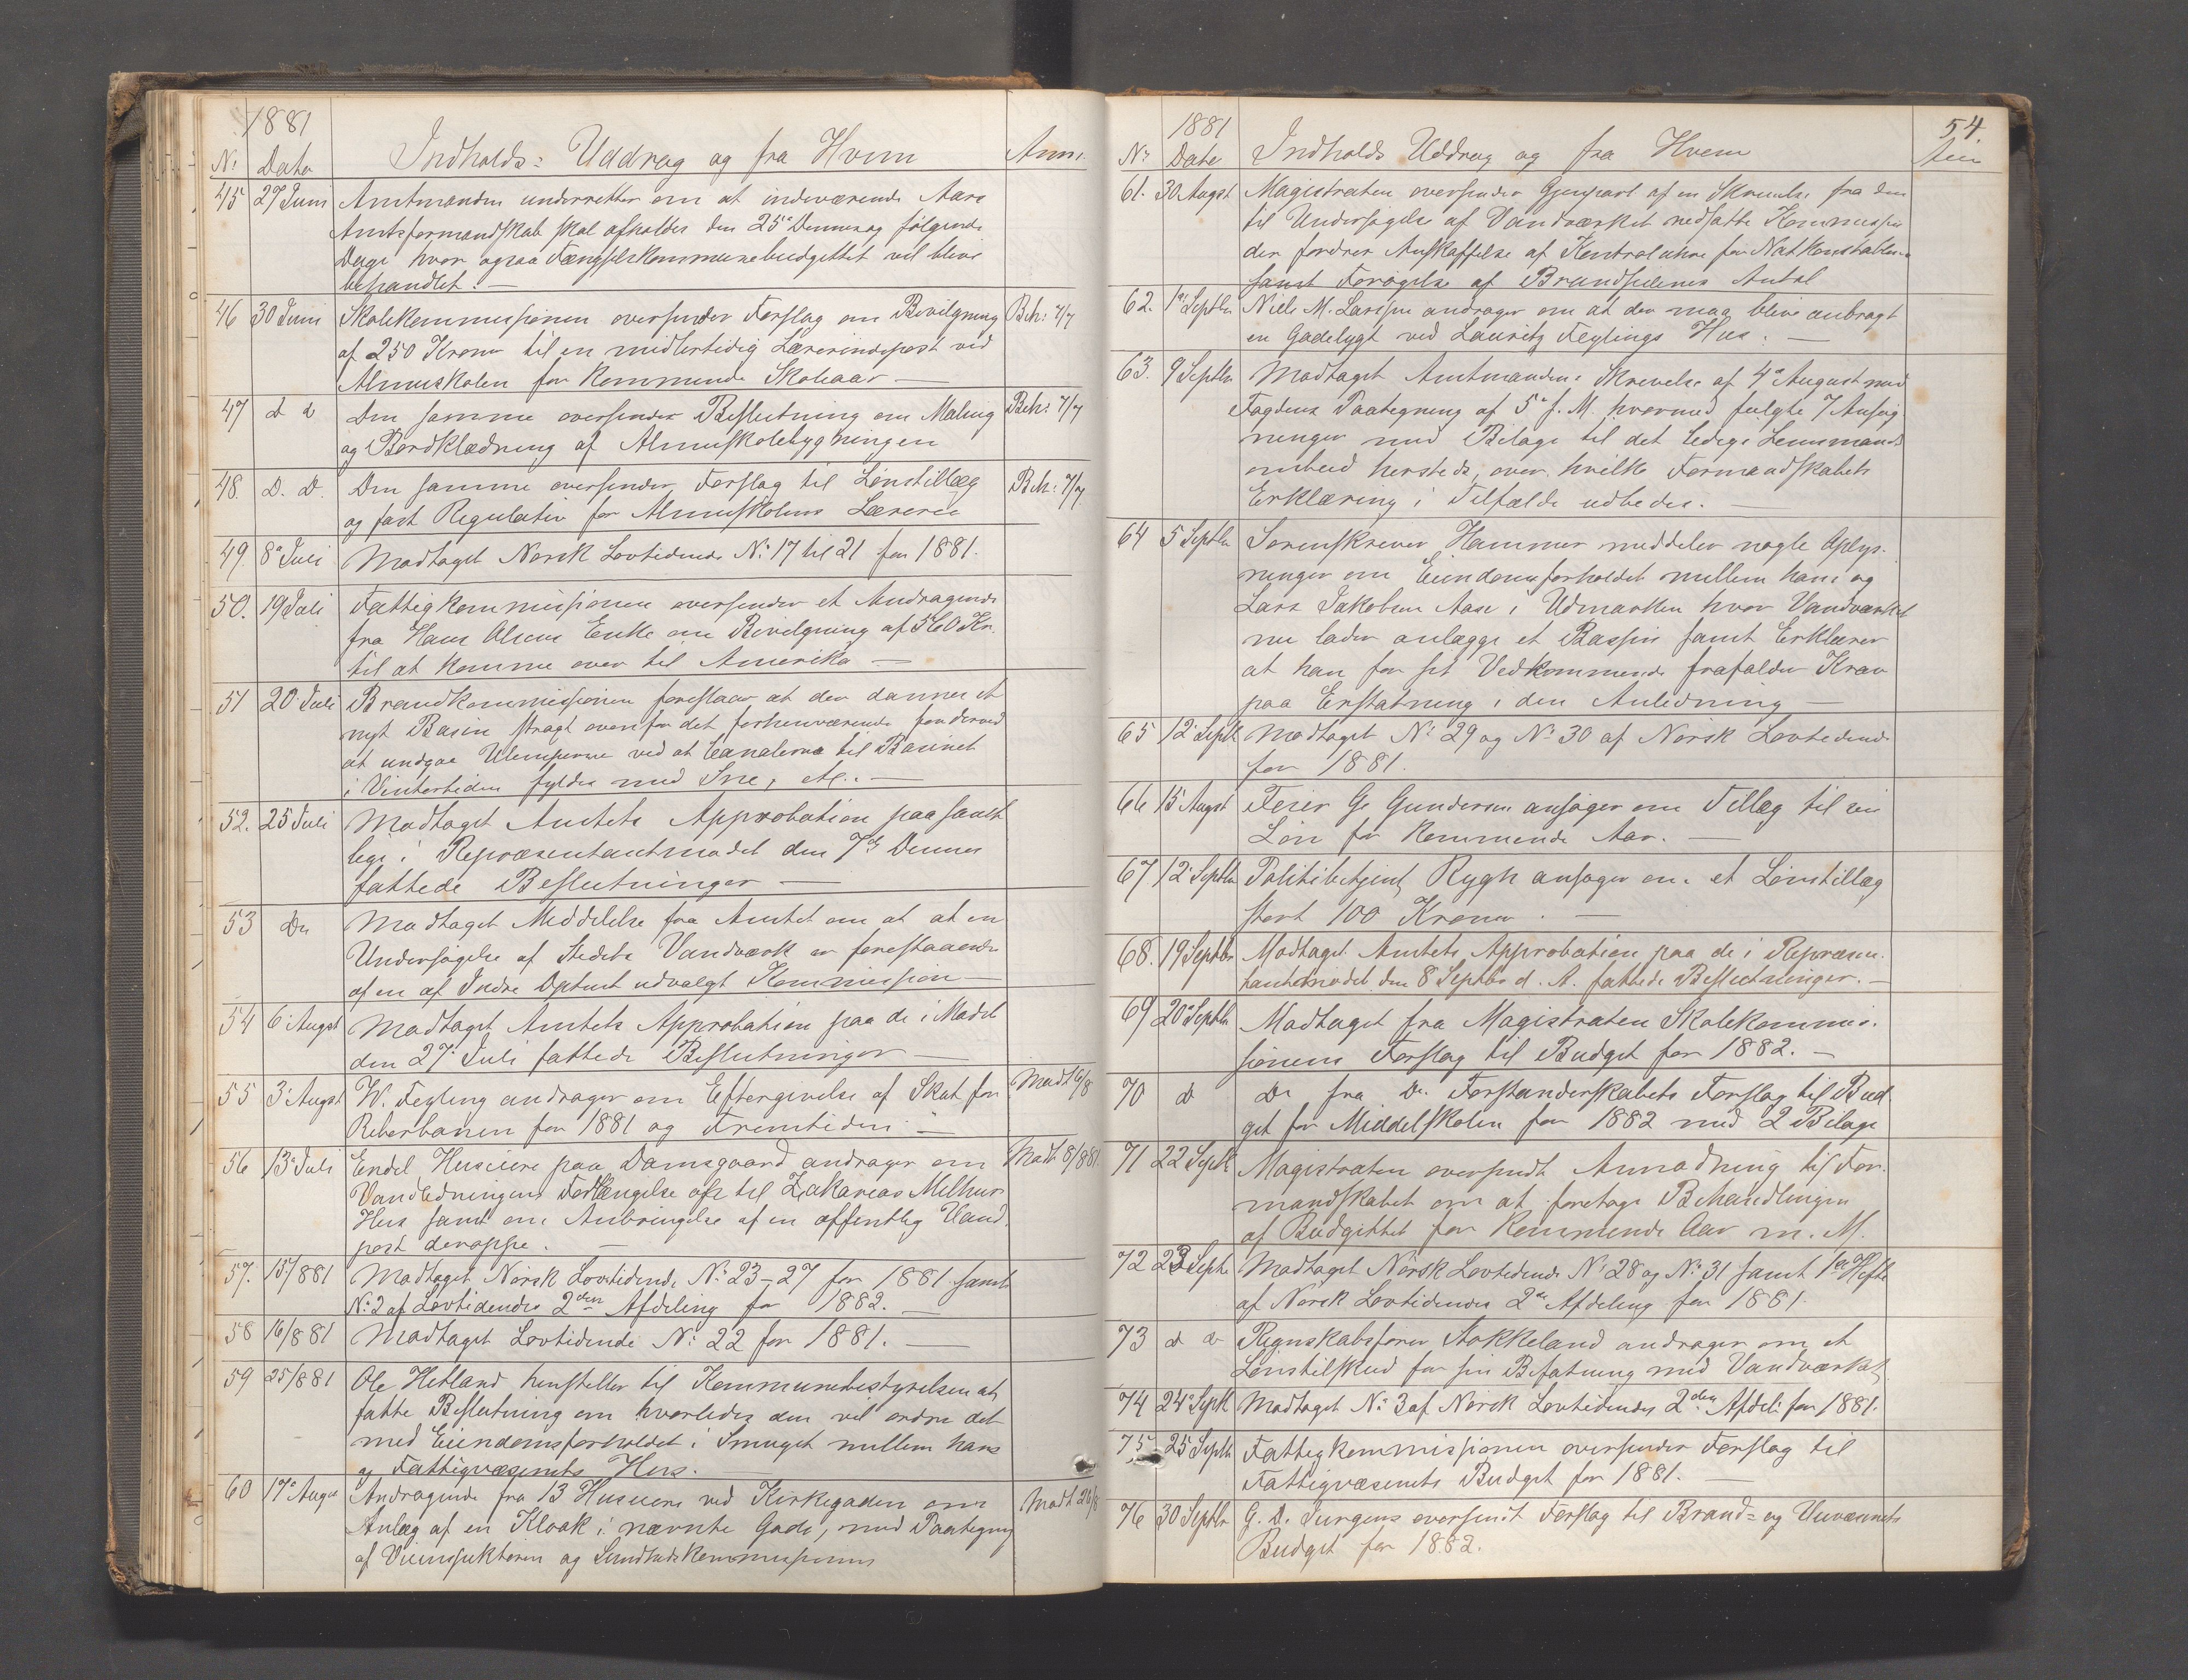 1881
No Dato Indholds- Uddrag og fra Hvem Anm.
45 27 Juni Amtmanden underretter om at indeværende Aars
Amtsformandskab skal afholdes den 25de Dennes og følgende
Dage hvor ogsaa Fængselskommunebudgettet vil blive
behandlet. —
46 30 Juni Skolekommissionen oversender Forslag om Bevilgning Beh: 7/7
af 250 Kroner til en midlertidig Lærerindepost ved
Almuskolen for kommende Skoleaar —
47 d d Den samme oversender Beslutning om Maling Beh: 7/7
og Bordklædning af Almuskolebygningen
48. D. D. Den samme oversender Forslag til Lønstillæg Beh: 7/7
og fast Regulativ for Almuskolens Lærere
49. 8de Juli Modtaget Norsk Lovtidende No 17 til 21 for 1881.
50. 19 Juli Fattigkommissionen oversender et Andragende
fra Hans Olsens Enke om Bevilgning af 360 Kr.
til at komme over til Amerika —
51 20 Juli Brandkommissionen foreslaar at der dannes et
nyt Basin stragt ovenfor det forhenværende for derved
at undgaa Ulemperne ved at Canalerne til Basinet
i Vintertiden fyldes med Sne, etc. —
52. 25 Juli Modtaget Amtets Approbation paa samt
lige i Repræsentantmødet den 7de Dennes
fattede Beslutninger —
53 Do Modtaget Meddelelse fra Amtet om at at en
Undersøgelse af Stedets Vandværk er forestaaende
af en af Indre Deptmt udvalgt Kommission —
54 6 Augst Modtaget Amtets Approbation paa de i Mødet
den 27 Juli fattede Beslutninger —
55 3 Augst W. Feyling andrager om Eftergivelse af Skat for Modt 6/8
Reberbanen for 1881 og Fremtiden —
56 13 Juli Endel Huseiere paa Damsgaard andrager om Modt 8/881
Vandledningens Forlængelse op til Zakarias Melhus
Hus samt om Anbringelse af en offentlig Vand
post deroppe. —
57. 15/881 Modtaget Norsk Lovtidende No 23-27 for 1881 samt
No 2 af Lovtidendes 2den Afdeling for 1882. —
58 16/881 Modtaget Lovtidende No 22 for 1881. —
59 25/881 Ole Hetland henstiller til Kommunebestyrelsen at
fatte Beslutning om hvorledes den vil ordne det
med Eiendomsforholdet i Smuget mellem hans
og Fattigvæsenets Hus. —
60 17 Augst Andragende fra 13 Huseiere ved Kirkegaden om Modt 26/8
Anlæg af en Kloak i nævnte Gade, med Paategning
af Veiinspektøren og Sundhedskommissionen
54.
1881
No Dato Indholds Uddrag og fra Hvem Anm
61. 30 Augst Magistraten oversender Gjenpart af en Skrivelse fra den
til Undersøgelse af Vandværket nedsatte Kommission
der fordrer Anskaffelse af Kontroluhre for Natkonstablerne
samt Forøgelse af Brandhulenes Antal
62. 1ste Septbr Niels M. Larssen andrager om at der maa blive anbragt
en Gadelygt ved Lauritz Feylings Hus. —
63. 9 Septbr Modtaget Amtmandens Skrivelse af 4de August med
Fogdens Paategning af 5te f. M. hvormed fulgte 7 Ansøg-
ninger med Bilage til det ledige Lensmands
ombud hersteds, over hvilke Formandskabets
Erklæring i Tilfælde udbedes. —
64 5 Septbr Sorenskriver Hammer meddeler nogle Oplys-
ninger om Eiendomsforholdet mellem ham og
Lars Jakobsen Aase i Udmarken hvor Vandværket
nu lader anlægge et Bassin samt Erklærer
at han for sit Vedkommende frafalder Krav
paa Erstatning i den Anledning —
65 12 Septb Modtaget No 29 og No 30 af Norsk Lovtidende
for 1881.
66 15 Augst Feier G. Gundersen ansøger om Tillæg til sin
Løn for kommende Aar. —
67 12 Septbr Politibetjent Rygh ansøger om et Lønstillæg
stort 100 Kroner. —
68. 19 Septbr Modtaget Amtets Approbation paa de i Repræsen-
tantmødet den 8 Septbr d. A. fattede Beslutninger. —
69 20 Septbr Modtaget fra Magistraten Skolekommis-
sionens Forslag til Budget for 1882. —
70 d Do fra Do Forstanderskabets Forslag til Bud
get for Middelskolen for 1882 med 2 Bilage
71 22 Septb Magistraten oversendt Anmodning til For-
mandskabet om at foretage Behandlingen
af Budgettet for kommende Aar m. M.
72 23 Septb Modtaget Norsk Lovtidende No 28 og No 31 samt 1ste Hefte
af Norsk Lovtidendes 2den Afdeling for 1881.
73 d d Regnskabsfører Stokkeland andrager om et
Lønstilskud for sin Befatning med Vandværket
74 24 Septb Modtaget No 3 af Norsk Lovtidendes 2den Afdel: for 1881.
75 25 Septb Fattigkommissionen oversender Forslag til
Fattigvæsenets Budget for 1881. —
76 30 Septbr G. D. Jurgens oversendt Forslag til Brand- og Veivæsenets
Budget for 1882.